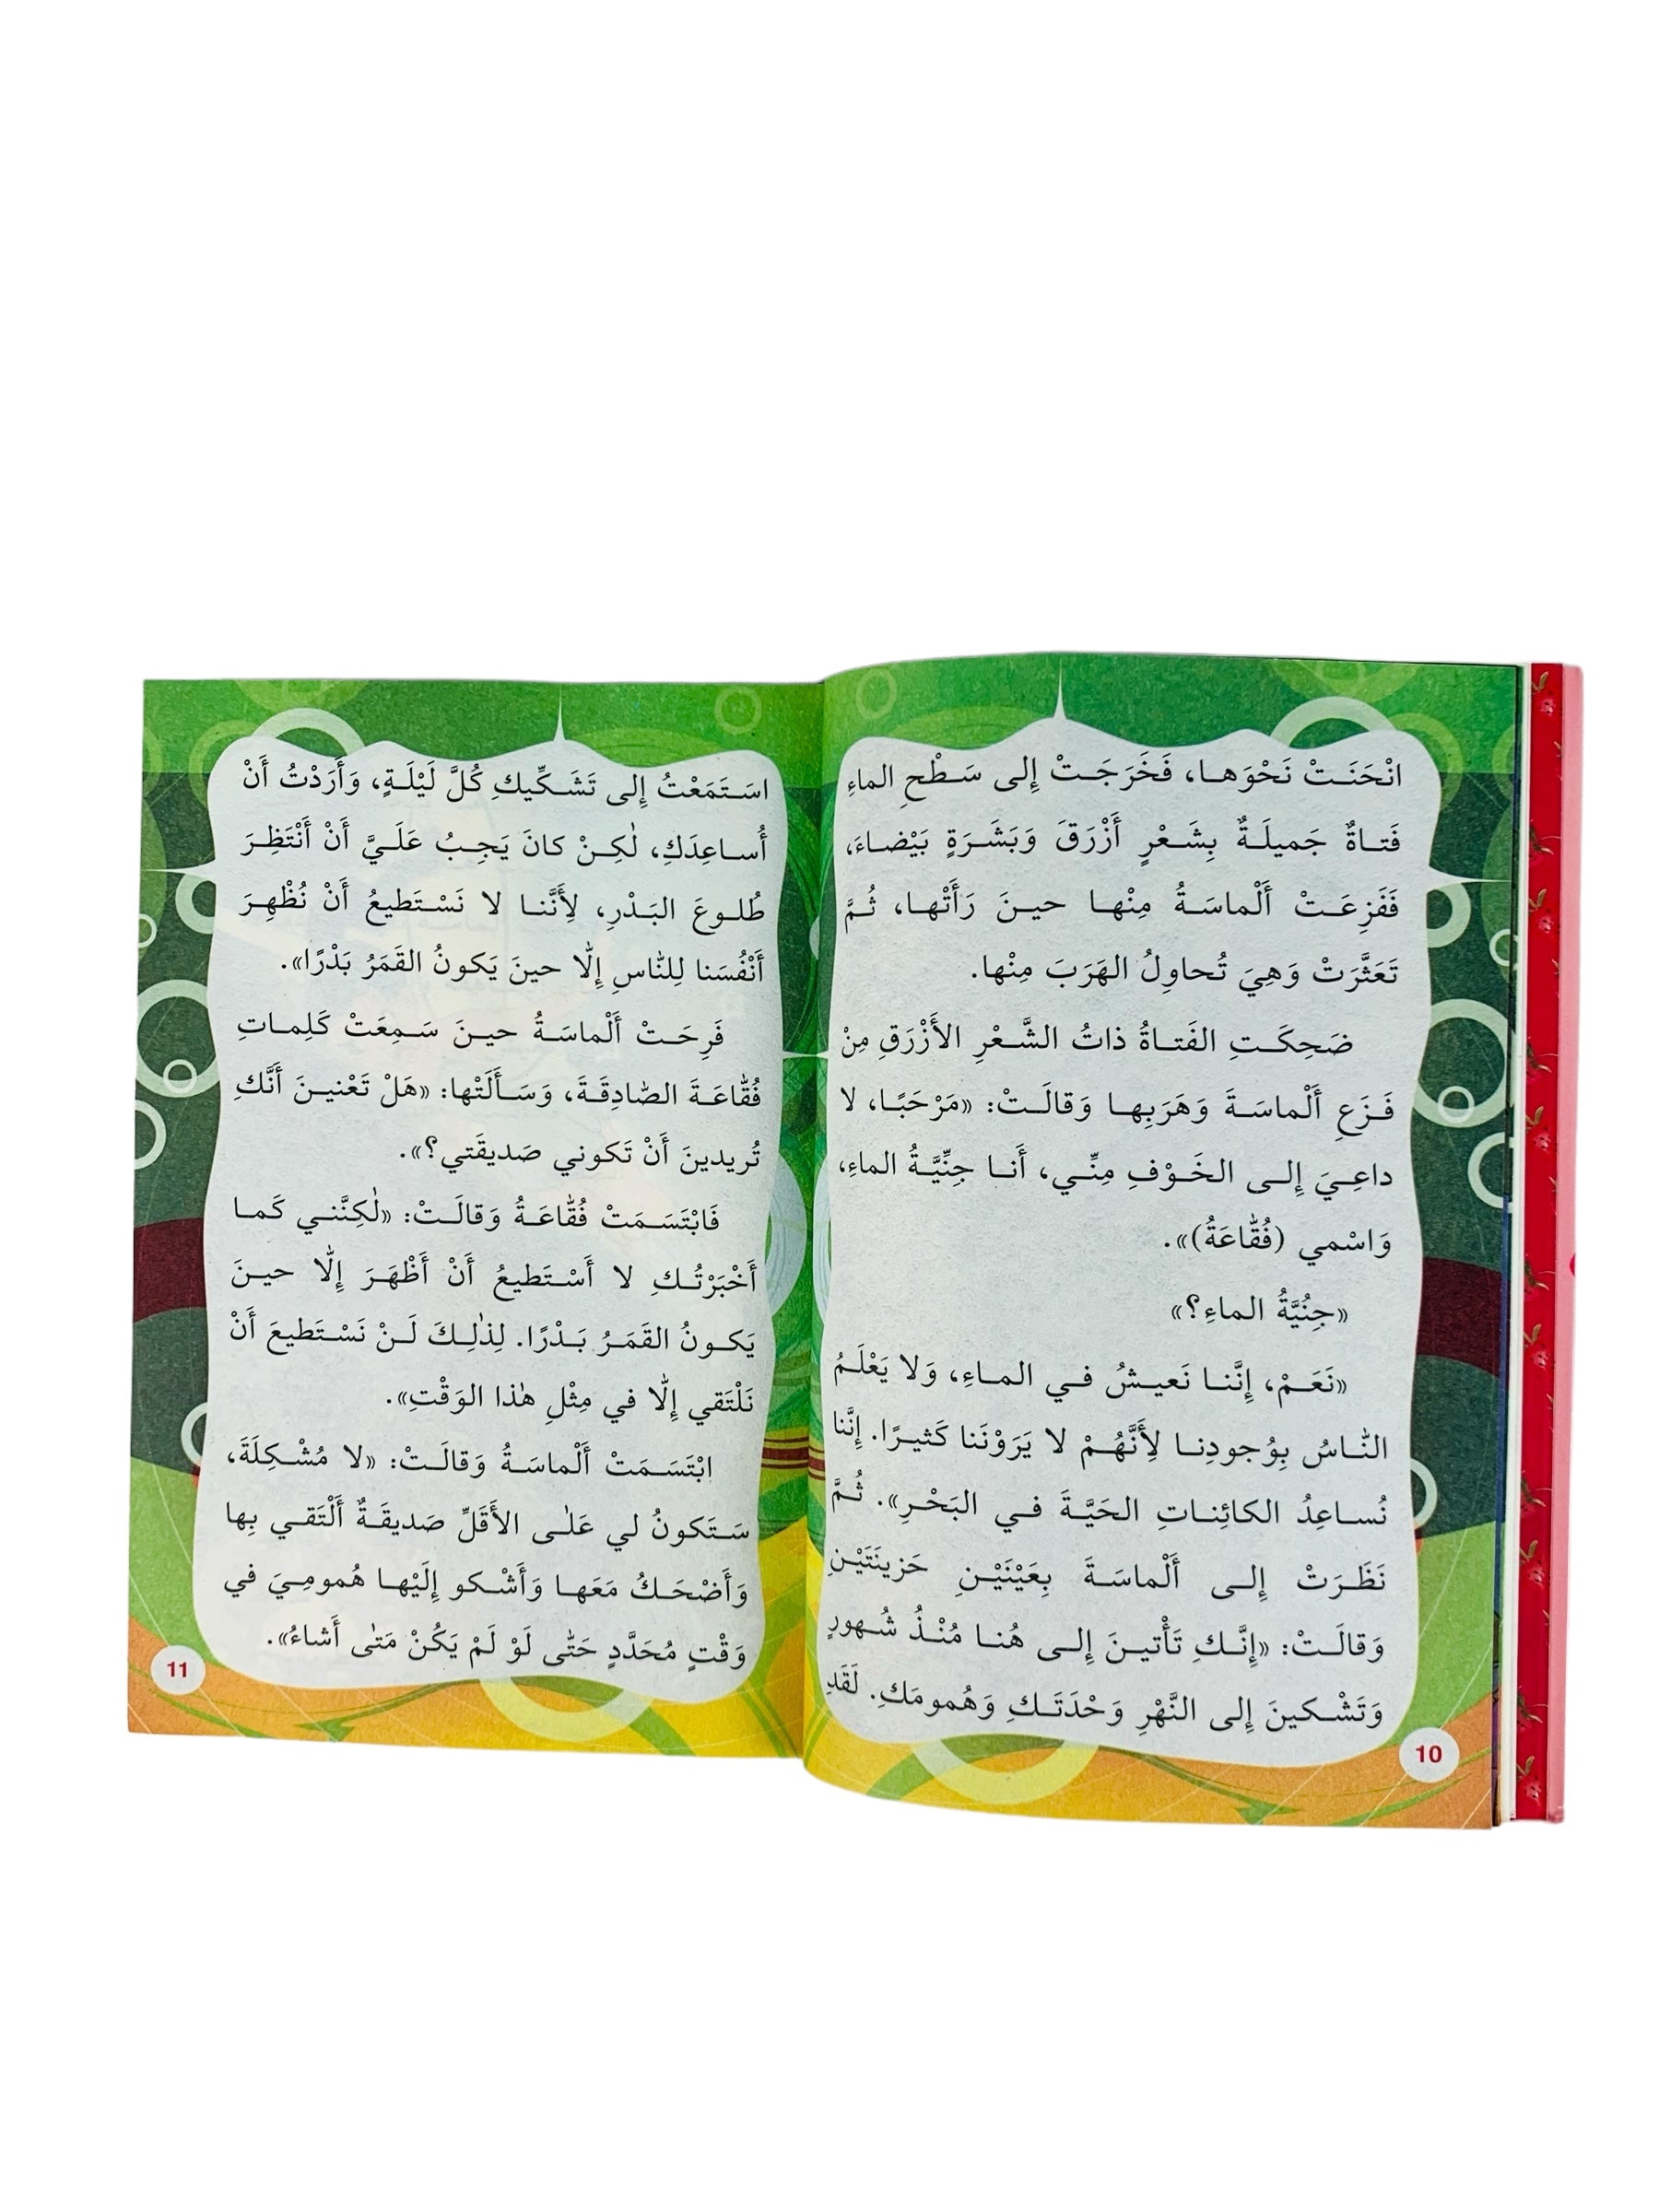 انْحَنَتْ نَحْوَها، فَخَرَجَتْ إِلى سَطْحِ الماءِ
فَتاةٌ جَميلَةٌ بِشَعْرٍ أَزْرَقَ وَبَشَرَةٍ بَيْضاءَ،
فَفَزِعَتْ أَلْماسَةُ مِنْها حينَ رَأَتْها، ثُمَّ
تَعَثَّرَتْ وَهِيَ تُحاوِلُ الهَرَبَ مِنْها.
ضَحِكَتِ الفَتاةُ ذاتُ الشَّعْرِ الأَزْرَقِ مِنْ
فَزَعِ أَلْماسَةَ وَهَرَبِها وَقالَتْ: «مَرْحَبًا، لا
داعِيَ إِلى الخَوْفِ مِنِّي، أَنا جِنِّيَّةُ الماءِ،
وَاسْمي (فُقّاعَةُ)».
«جِنِّيَّةُ الماءِ؟»
«نَعَمْ، إِنَّنا نَعيشُ في الماءِ، وَلا يَعْلَمُ
النّاسُ بِوُجودِنا لِأَنَّهُمْ لا يَرَوْنَنا كَثيرًا. إِنَّنا
نُساعِدُ الكائِناتِ الحَيَّةَ في البَحْرِ». ثُمَّ
نَظَرَتْ إِلى أَلْماسَةَ بِعَيْنَيْنِ حَزينَتَيْنِ
وَقالَتْ: «إِنَّكِ تَأْتينَ إِلى هُنا مُنْذُ شُهورٍ
وَتَشْكينَ إِلى النَّهْرِ وَحْدَتَكِ وَهُمومَكِ. لَقَدِ
10
اسْتَمَعْتُ إِلى تَشَكِّيكِ كُلَّ لَيْلَةٍ، وَأَرَدْتُ أَنْ
أُساعِدَكِ، لٰكِنْ كانَ يَجِبُ عَلَيَّ أَنْ أَنْتَظِرَ
طُلوعَ البَدْرِ، لِأَنَّنا لا نَسْتَطيعُ أَنْ نُظْهِرَ
أَنْفُسَنا لِلنّاسِ إِلّا حينَ يَكونُ القَمَرُ بَدْرًا».
فَرِحَتْ أَلْماسَةُ حينَ سَمِعَتْ كَلِماتِ
فُقّاعَةَ الصّادِقَةَ، وَسَأَلَتْها: «هَلْ تَعْنينَ أَنَّكِ
تُريدينَ أَنْ تَكوني صَديقَتي؟».
فَابْتَسَمَتْ فُقّاعَةُ وَقالَتْ: «لٰكِنَّني كَما
أَخْبَرْتُكِ لا أَسْتَطيعُ أَنْ أَظْهَرَ إِلّا حينَ
يَكونُ القَمَرُ بَدْرًا. لِذٰلِكَ لَنْ نَسْتَطيعَ أَنْ
نَلْتَقي إِلّا في مِثْلِ هٰذا الوَقْتِ».
ابْتَسَمَتْ أَلْماسَةُ وَقالَتْ: «لا مُشْكِلَةَ،
سَتَكونُ لي عَلى الأَقَلِّ صَديقَةٌ أَلْتَقي بِها
وَأَضْحَكُ مَعَها وَأَشْكو إِلَيْها هُمومِيَ في
وَقْتٍ مُحَدَّدٍ حَتّى لَوْ لَمْ يَكُنْ مَتى أَشاءُ».
11